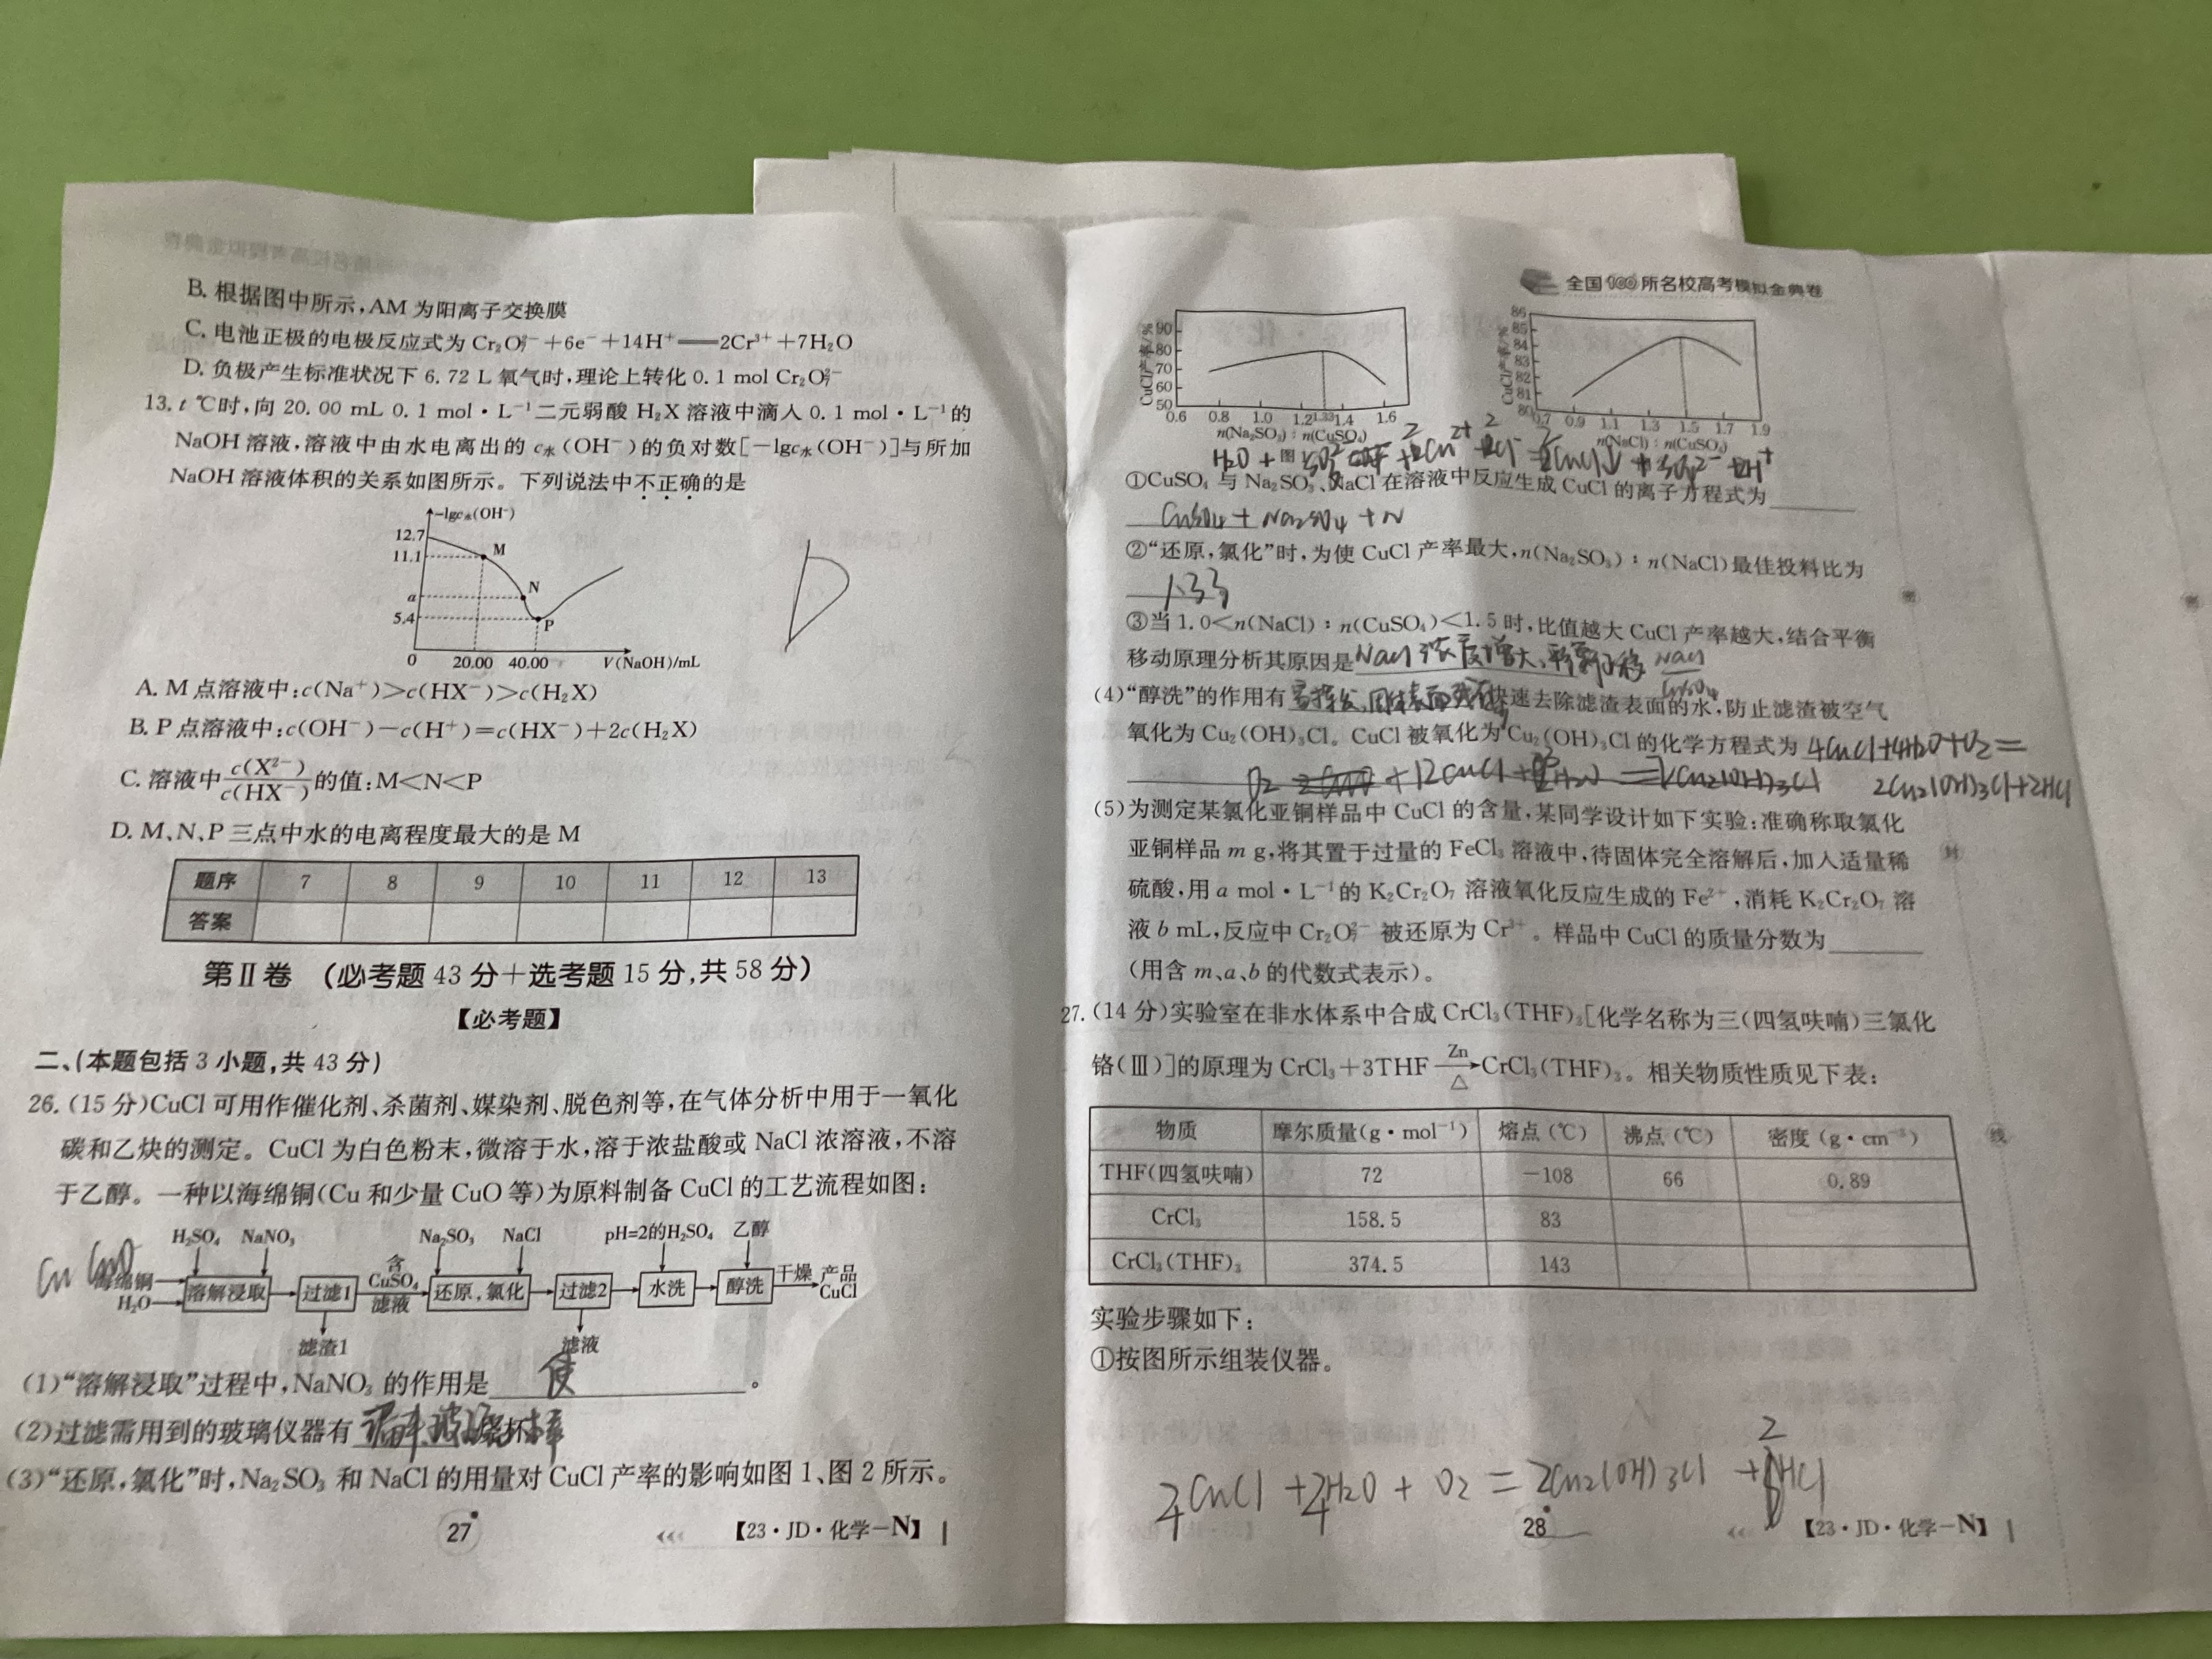 B. 根据图中所示,AM 为阳离子交换膜
C. 电池正极的电极反应式为 Cr₂O₇²⁻+6e⁻+14H⁺══2Cr³⁺+7H₂O
D. 负极产生标准状况下 6.72 L 氧气时,理论上转化 0.1 mol Cr₂O₇²⁻
13. t ℃时,向 20.00 mL 0.1 mol·L⁻¹二元弱酸 H₂X 溶液中滴入 0.1 mol·L⁻¹的
NaOH 溶液,溶液中由水电离出的 c水(OH⁻)的负对数[-lgc水(OH⁻)]与所加
NaOH 溶液体积的关系如图所示。下列说法中不正确的是
-lgc水(OH⁻)
12.7
11.1
a
5.4
M
N
P
0 20.00 40.00 V(NaOH)/mL
D
A. M 点溶液中:c(Na⁺)>c(HX⁻)>c(H₂X)
B. P 点溶液中:c(OH⁻)-c(H⁺)=c(HX⁻)+2c(H₂X)
C. 溶液中c(X²⁻)/c(HX⁻)的值:M<N<P
D. M、N、P 三点中水的电离程度最大的是 M
题序 7 8 9 10 11 12 13
答案
第Ⅱ卷 (必考题 43 分+选考题 15 分,共 58 分)
【必考题】
二、(本题包括 3 小题,共 43 分)
26. (15 分)CuCl 可用作催化剂、杀菌剂、媒染剂、脱色剂等,在气体分析中用于一氧化
碳和乙炔的测定。CuCl 为白色粉末,微溶于水,溶于浓盐酸或 NaCl 浓溶液,不溶
于乙醇。一种以海绵铜(Cu 和少量 CuO 等)为原料制备 CuCl 的工艺流程如图:
H₂SO₄ NaNO₃ Na₂SO₃ NaCl pH=2的H₂SO₄ 乙醇
Cu CuO
海绵铜 H₂O 溶解浸取 过滤1 含CuSO₄滤液 还原,氯化 过滤2 水洗 醇洗 干燥 产品CuCl
滤渣1 滤液
(1)“溶解浸取”过程中,NaNO₃ 的作用是 使 。
(2)过滤需用到的玻璃仪器有 漏斗 玻璃棒 烧杯
(3)“还原,氯化”时,Na₂SO₃ 和 NaCl 的用量对 CuCl 产率的影响如图 1、图 2 所示。
27
【23·JD·化学-N】
全国100所名校高考模拟金典卷
CuCl产率/%
90
80
70
60
50
0.6 0.8 1.0 1.2 1.33 1.4 1.6
n(Na₂SO₃):n(CuSO₄)
CuCl产率/%
86
85
84
83
82
81
80
0.7 0.9 1.1 1.3 1.5 1.7 1.9
n(NaCl):n(CuSO₄)
①CuSO₄ 与 Na₂SO₃、NaCl 在溶液中反应生成 CuCl 的离子方程式为
CuSO₄ + Na₂SO₄ + N
②“还原,氯化”时,为使 CuCl 产率最大,n(Na₂SO₃):n(NaCl)最佳投料比为
1.33
③当 1.0<n(NaCl):n(CuSO₄)<1.5 时,比值越大 CuCl 产率越大,结合平衡
移动原理分析其原因是 NaCl 浓度增大,平衡 移 NaCl
CuSO₄
(4)“醇洗”的作用有 快速去除滤渣表面的水,防止滤渣被空气
氧化为 Cu₂(OH)₃Cl。CuCl 被氧化为 Cu₂(OH)₃Cl 的化学方程式为 4CuCl+4H₂O+O₂=
2Cu₂(OH)₃Cl+2HCl
(5)为测定某氯化亚铜样品中 CuCl 的含量,某同学设计如下实验:准确称取氯化
亚铜样品 m g,将其置于过量的 FeCl₃ 溶液中,待固体完全溶解后,加入适量稀
硫酸,用 a mol·L⁻¹的 K₂Cr₂O₇ 溶液氧化反应生成的 Fe²⁺,消耗 K₂Cr₂O₇ 溶
液 b mL,反应中 Cr₂O₇²⁻ 被还原为 Cr³⁺。样品中 CuCl 的质量分数为
(用含 m、a、b 的代数式表示)。
27. (14 分)实验室在非水体系中合成 CrCl₃(THF)₃[化学名称为三(四氢呋喃)三氯化
铬(Ⅲ)]的原理为 CrCl₃+3THF Zn/△→CrCl₃(THF)₃。相关物质性质见下表:
物质 摩尔质量(g·mol⁻¹) 熔点(℃) 沸点(℃) 密度(g·cm⁻³)
THF(四氢呋喃) 72 -108 66 0.89
CrCl₃ 158.5 83
CrCl₃(THF)₃ 374.5 143
实验步骤如下:
①按图所示组装仪器。
4CuCl + 4H₂O + O₂ = 2Cu₂(OH)₃Cl + 2HCl
28
【23·JD·化学-N】
密
封
线